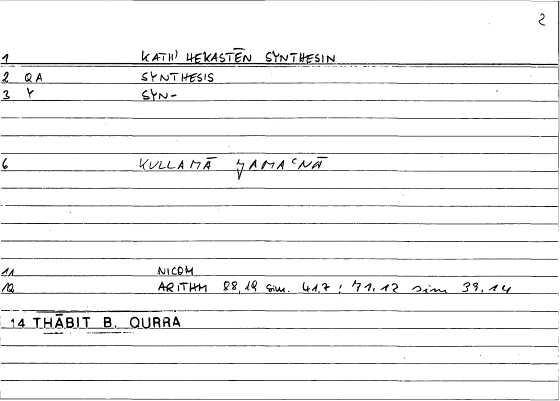 2
1 KATH' HEKASTĒN SYNTHESIN
2 QA SYNTHESIS
3 Y SYN-
6 KULLAMĀ ǦAMAʿNĀ
11 NICOM
12 ARITHM 88,19 sim. 41,7 ; 71,12 sim 39,14
14 THĀBIT B. QURRA